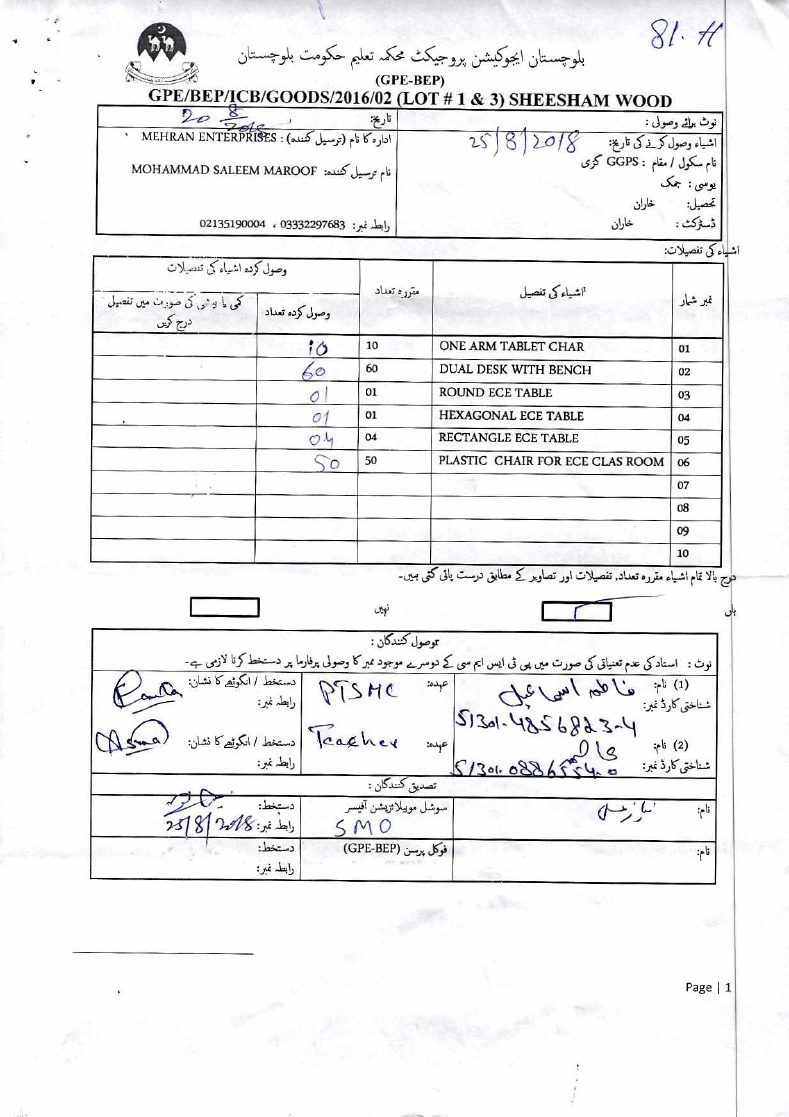 81-H
بلوچستان ایجوکیشن پروجیکٹ محکمہ تعلیم حکومت بلوچستان
(GPE-BEP)
GPE/BEP/ICB/GOODS/2016/02 (LOT # 1 & 3) SHEESHAM WOOD
نوٹ برائے وصولی :
تاریخ: 20 8 2018
اشیاء وصول کرنے کی تاریخ: 25/8/2018
ادارہ کا نام (ترسیل کنندہ) : MEHRAN ENTERPRISES
نام سکول / مقام : GGPS کری
نام ترسیل کنندہ: MOHAMMAD SALEEM MAROOF
یوسی : جمک
تحصیل: خاران
ڈسٹرکٹ : خاران
رابطہ نمبر: 03332297683 ، 02135190004
اشیاء کی تفصیلات:
نمبر شمار اشیاء کی تفصیل مقررہ تعداد وصول کردہ اشیاء کی تفصیلات
وصول کردہ تعداد کمی یا بیشی کی صورت میں تفصیل درج کریں
01 ONE ARM TABLET CHAR 10 10
02 DUAL DESK WITH BENCH 60 60
03 ROUND ECE TABLE 01 01
04 HEXAGONAL ECE TABLE 01 01
05 RECTANGLE ECE TABLE 04 04
06 PLASTIC CHAIR FOR ECE CLAS ROOM 50 50
07
08
09
10
درج بالا تمام اشیاء مقررہ تعداد، تفصیلات اور تصاویر کے مطابق درست پائی گئی ہیں۔
ہاں نہیں
وصول کنندگان :
نوٹ : استاد کی عدم تعیناتی کی صورت میں پی ٹی ایس ایم سی کے دوسرے موجود ممبر کا وصولی پرفارما پر دستخط کرنا لازمی ہے۔
(1) نام: فاطمہ اسماعیل عہدہ: PTSMC دستخط / انگوٹھے کا نشان:
شناختی کارڈ نمبر: 51301-4856823-4 رابطہ نمبر:
(2) نام: عہدہ: Teacher دستخط / انگوٹھے کا نشان: Asma
شناختی کارڈ نمبر: 51301-0886554-0 رابطہ نمبر:
تصدیق کنندگان :
نام: سوشل موبیلائزیشن آفیسر دستخط:
SMO رابطہ نمبر: 25/8/2018
نام: فوکل پرسن (GPE-BEP) دستخط:
رابطہ نمبر:
Page | 1